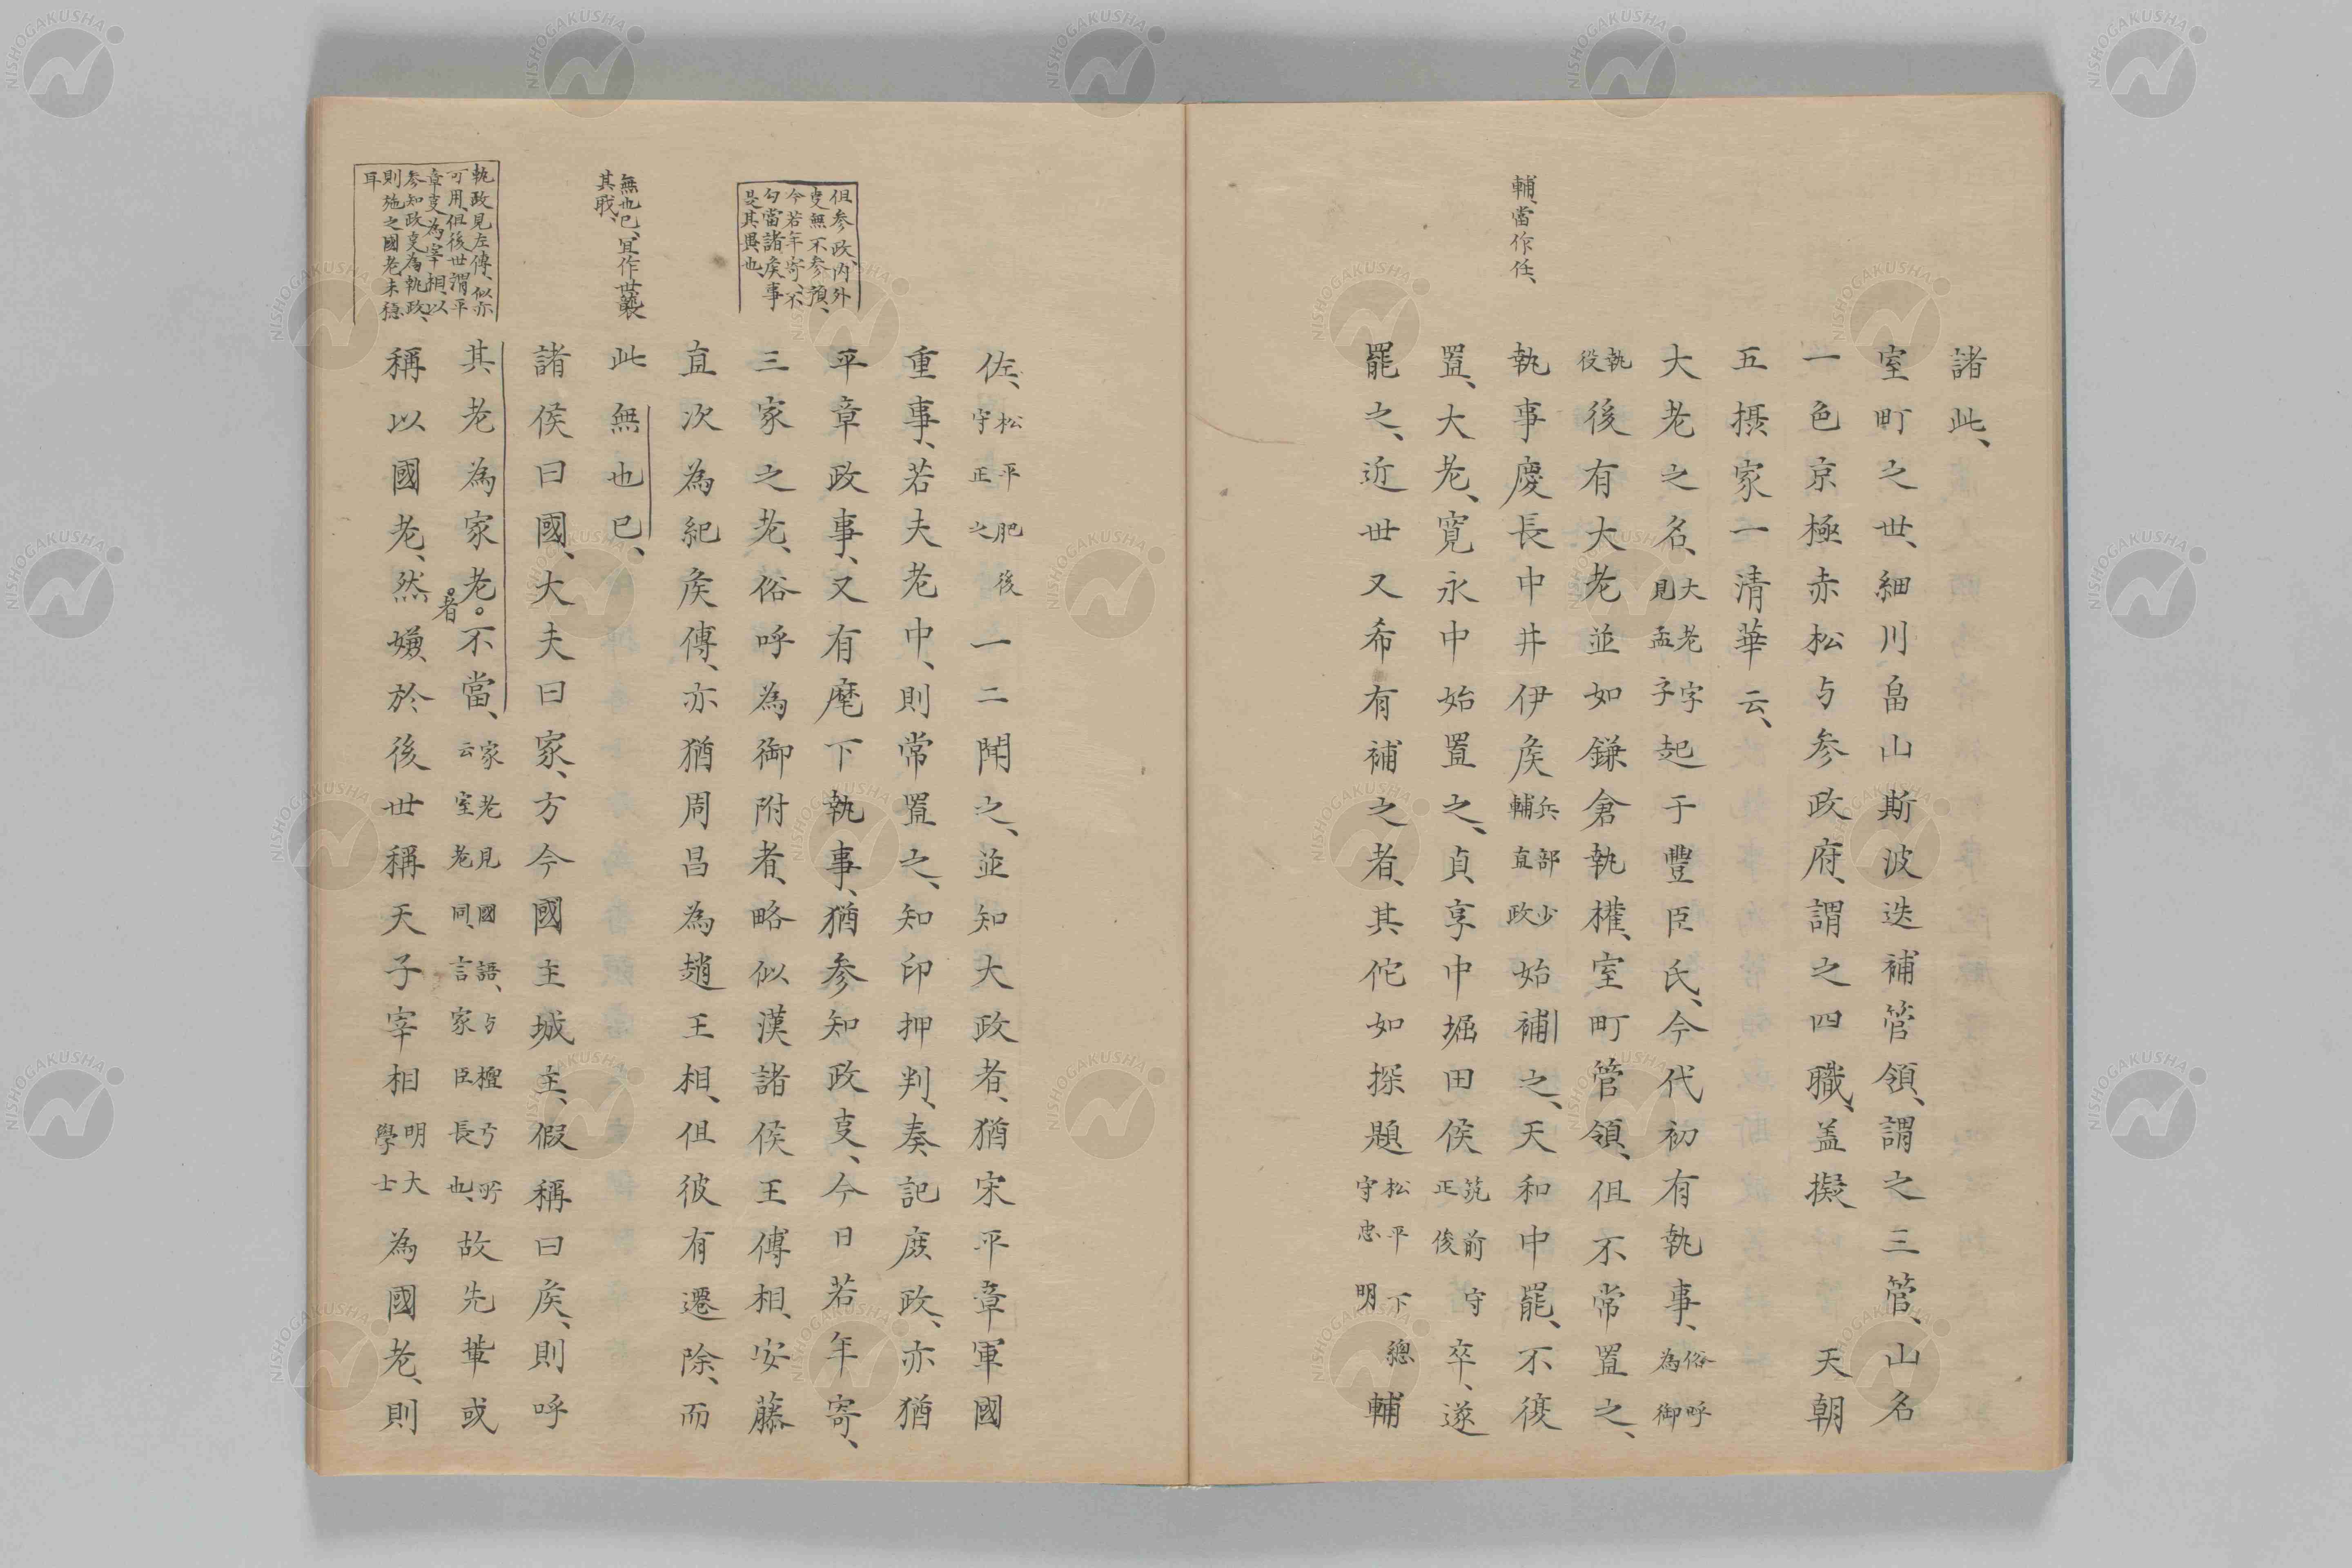 輔、當作任、
諸此、
室町之世、細川畠山斯波迭補管領、謂之三管、山名
一色京極赤松与参政府、謂之四職、盖擬　天朝
五摂家一清華云、
大老之名、大老字見孟子起于豊臣氏、今代初有執事、俗呼為御
執役後有大老並如鎌倉執權、室町管領、但不常置之、
執事慶長中井伊矦兵部少輔直政始補之、天和中罷、不復
置、大老、寛永中始置之、貞享中堀田侯筑前守正俊卒、遂
罷之、近世又希有補之者、其佗如探題松平下總守忠明輔
但参政、内外
叓無不参預、
今若年寄、不
勾當諸矦事
是其異也、
無也已、宜作世襲
其戢、
執政見左傳、似亦
可用、但後世謂平
章叓為宰相、以
参知政叓為執政、
則施之國老未穏
耳
佐、松平肥後守正之一二開之、並知大政者、猶宋平章軍國
重事、若夫老中、則常置之、知印押判、奏記庶政、亦猶
平章政事、又有麾下執事、猶参知政叓、今日若年寄、
三家之老、俗呼為御附者、略似漢諸侯王傅相、安藤
直次為紀矦傅、亦猶周昌為趙王相、但彼有遷除、而
此無也已、
諸侯曰國、大夫曰家、方今國主城主、假稱曰矦、則呼
其老為家老。不當、家老見國語、与檀弓所云室老同、言家臣長也、故先軰或
稱以國老、然者嫌於後世稱天子宰相明大學士為國老、則
NISHOGAKUSHA